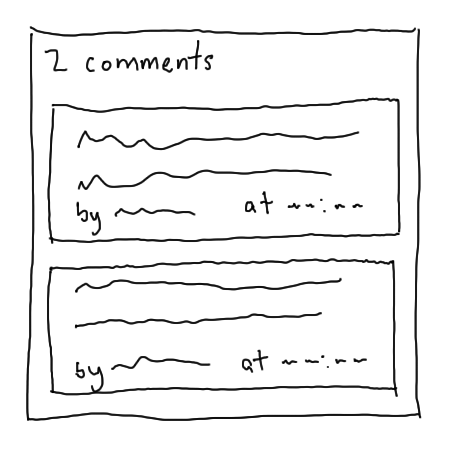 2 comments
by
at
by
at